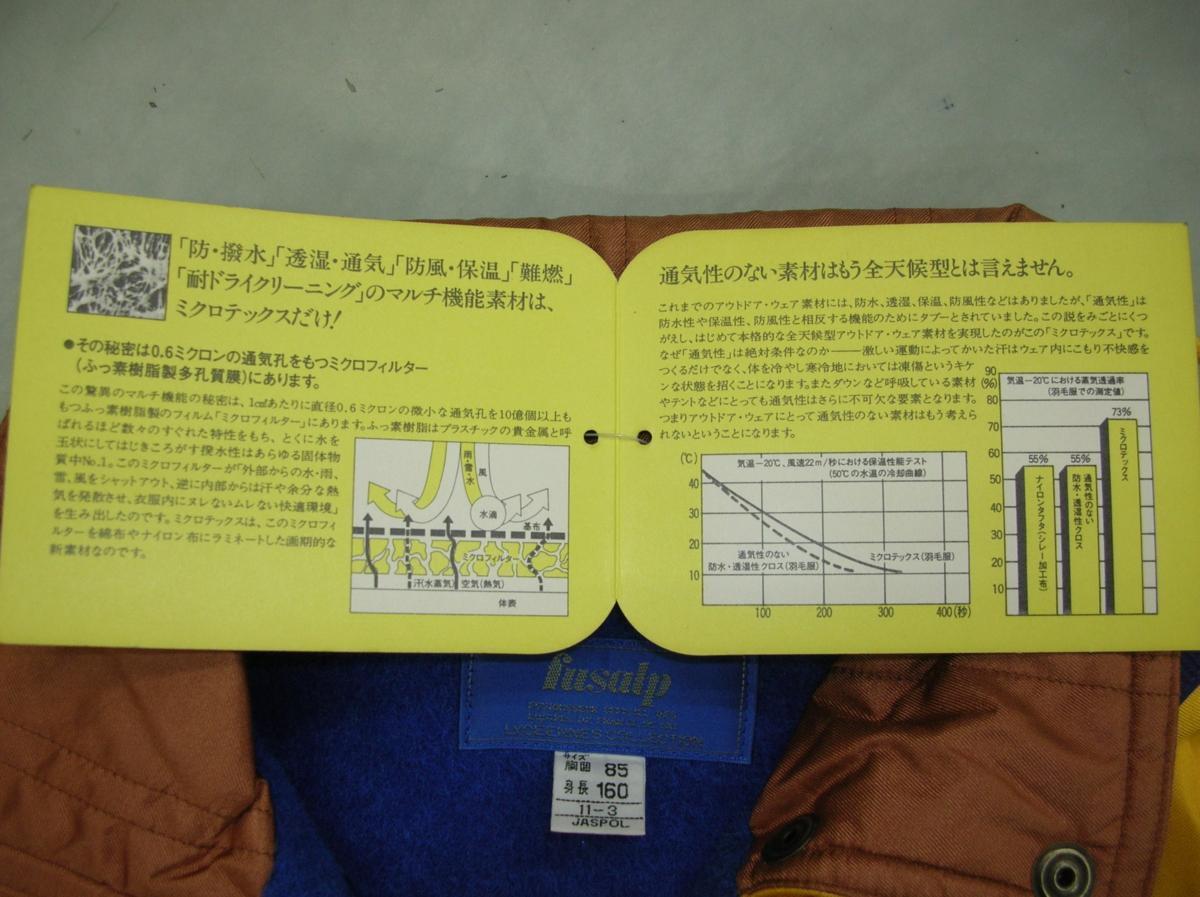 「防・撥水」「透湿・通気」「防風・保温」「難燃」
「耐ドライクリーニング」のマルチ機能素材は、
ミクロテックスだけ!
●その秘密は0.6ミクロンの通気孔をもつミクロフィルター
(ふっ素樹脂製多孔質膜)にあります。
この驚異のマルチ機能の秘密は、1㎠あたりに直径0.6ミクロンの微小な通気孔を10億個以上も
もつふっ素樹脂製のフィルム「ミクロフィルター」にあります。ふっ素樹脂はプラスチックの貴金属と呼
ばれるほど数々のすぐれた特性をもち、とくに水を
玉状にしてはじきころがす撥水性はあらゆる固体物
質中No.1。このミクロフィルターが「外部からの水・雨、
雪、風をシャットアウト、逆に内部からは汗や余分な熱
気を発散させ、衣服内にヌレないムレない快適環境」
を生み出したのです。ミクロテックスは、このミクロフィ
ルターを綿布やナイロン布にラミネートした画期的な
新素材なのです。
雨・雪・水
風
水滴
基布
ミクロフィルター
汗(水蒸気)
空気(熱気)
体表
通気性のない素材はもう全天候型とは言えません。
これまでのアウトドア・ウェア素材には、防水、透湿、保温、防風性などはありましたが、「通気性」は
防水性や保温性、防風性と相反する機能のためにタブーとされていました。この説をみごとにくつ
がえし、はじめて本格的な全天候型アウトドア・ウェア素材を実現したのがこの「ミクロテックス」です。
なぜ「通気性」は絶対条件なのか――激しい運動によってかいた汗はウェア内にこもり不快感を
つくるだけでなく、体を冷やし寒冷地においては凍傷というキケ
ンな状態を招くことになります。またダウンなど呼吸している素材
やテントなどにとっても通気性はさらに不可欠な要素となります。
つまりアウトドア・ウェアにとって通気性のない素材はもう考えら
れないということになります。
(℃)
気温−20℃、風速22m/秒における保温性能テスト
(50℃の水温の冷却曲線)
40
30
20
10
通気性のない
防水・透湿性クロス(羽毛服)
ミクロテックス(羽毛服)
100
200
300
400(秒)
90
(%)
気温−20℃における蒸気透過率
(羽毛服での測定値)
80
70
60
50
40
30
20
10
55%
55%
73%
ナイロンタフタ(シレー加工布)
通気性のない
防水・透湿性クロス
ミクロテックス
fusalp
COLLECTION
サイズ
胸囲 85
身長 160
11-3
JASPOL